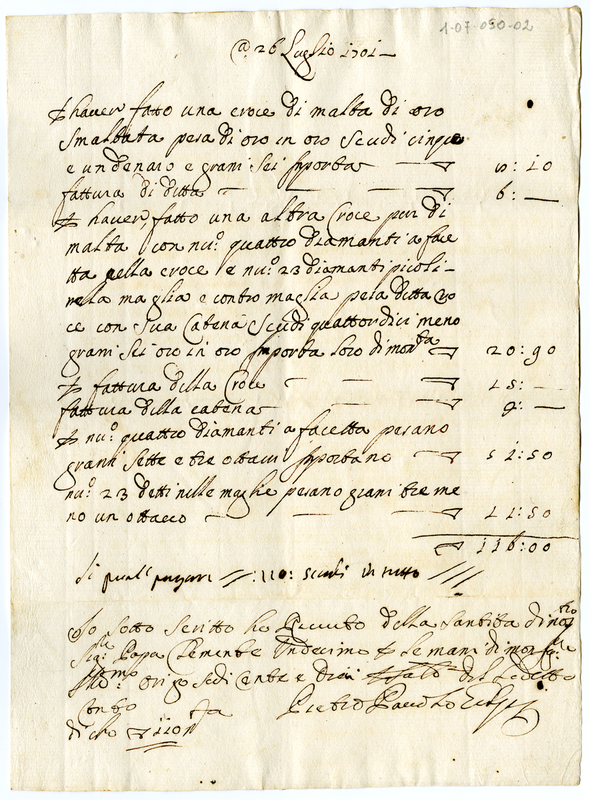 1-07-030-02
@ 26 Luglio 1701
hauer fatto una croce di malta di oro
smaltata pesa di oro in oro scudi cinque
e un denaro e grani sei inporta 10
fattura di detta 6: —
hauer fatto una altra Croce pur di
malta con nu.o quattro diamanti a face
tta nella croce e nu.o 23 diamanti picoli
nella maglia e contro maglia pesa detta cro
ce con sua Catena scudi quattordici meno
grani sei oro in oro inporta loro di 20: 90
fattura della Croce 15: —
fattura della catena 9: —
nu.o quattro diamanti a facetta pesano
grani sette e tre ottaui inportano 51:50
nu.o 23 detti nille maglie pesano grani tre me
no un ottaeo 11:50
116:00
110: scudi in tutto
Io sotto scritto ho riceuuto della Santita di
Sig.re Papa Clemente Undecimo le mani di
scudi cento e dieci del
conto
di 110 Pietro Paolo